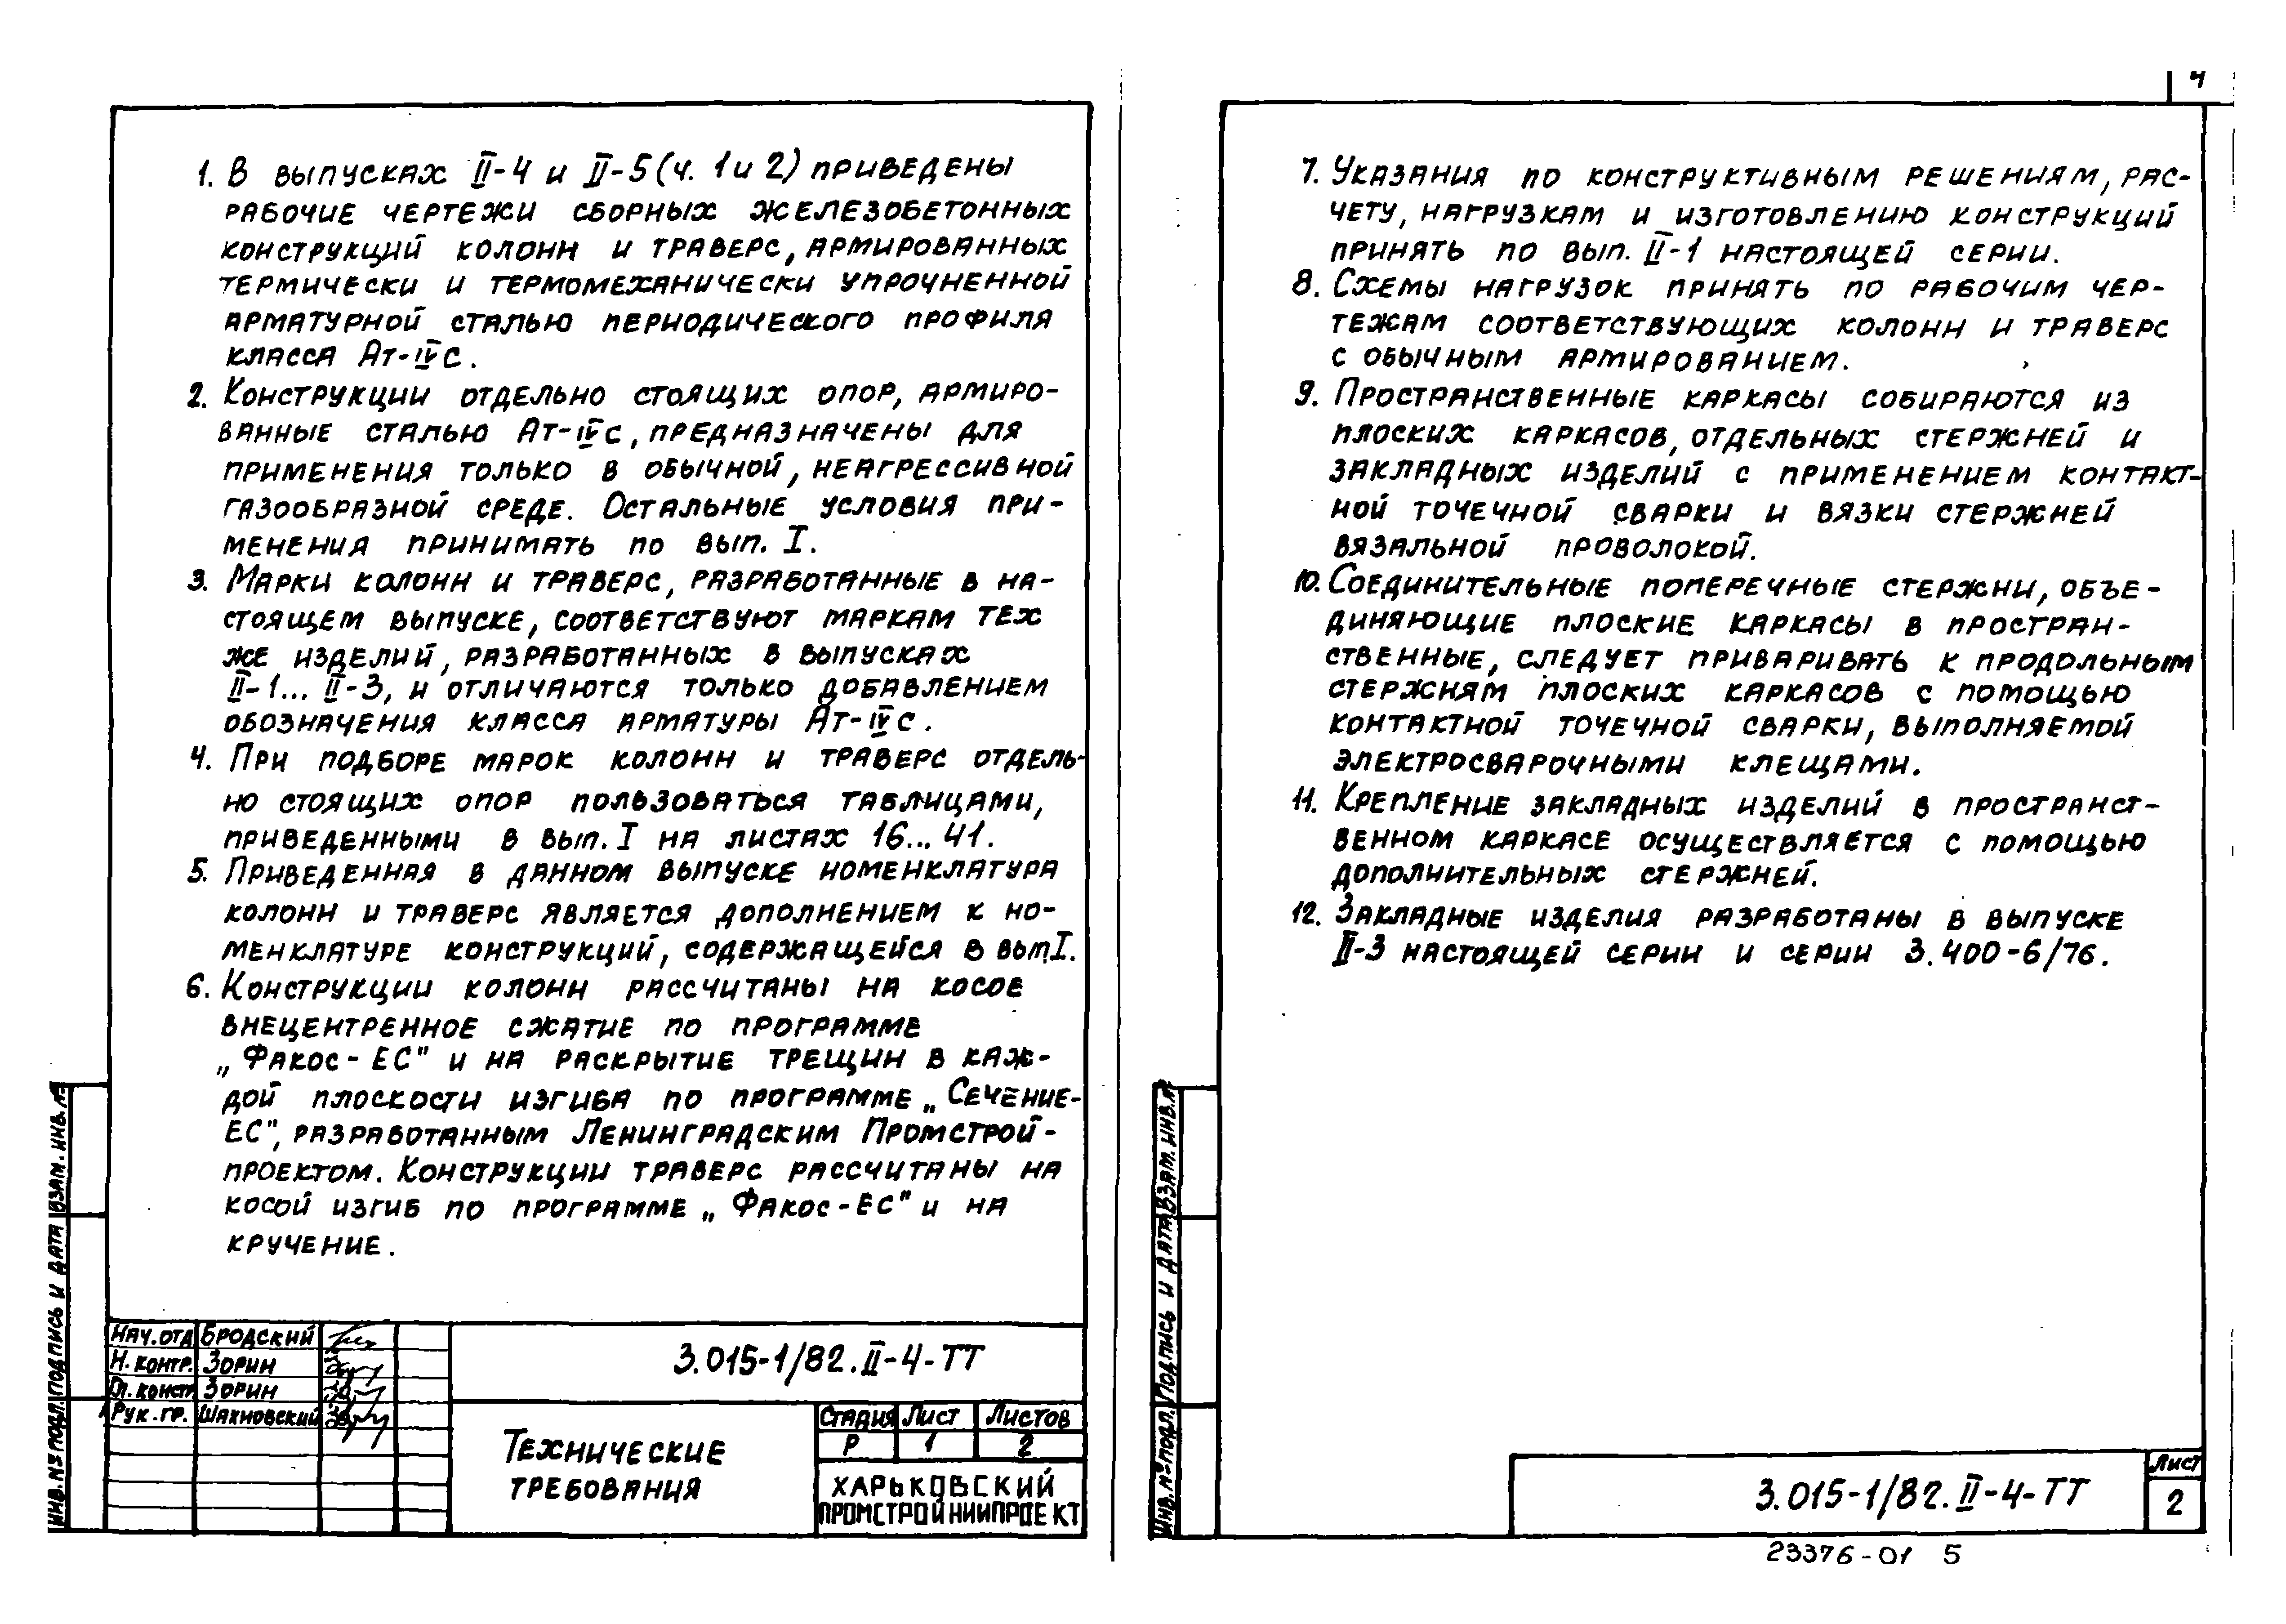 1. В выпусках II-4 и II-5 (ч. 1 и 2) приведены
рабочие чертежи сборных железобетонных
конструкций колонн и траверс, армированных
термически и термомеханически упрочненной
арматурной сталью периодического профиля
класса Ат-IVс.
2. Конструкции отдельно стоящих опор, армиро-
ванные сталью Ат-IVс, предназначены для
применения только в обычной, неагрессивной
газообразной среде. Остальные условия при-
менения принимать по вып. I.
3. Марки колонн и траверс, разработанные в на-
стоящем выпуске, соответствуют маркам тех
же изделий, разработанных в выпусках
II-1... II-3, и отличаются только добавлением
обозначения класса арматуры Ат-IVс.
4. При подборе марок колонн и траверс отдель-
но стоящих опор пользоваться таблицами,
приведенными в вып. I на листах 16... 41.
5. Приведенная в данном выпуске номенклатура
колонн и траверс является дополнением к но-
менклатуре конструкций, содержащейся в вып. I.
6. Конструкции колонн рассчитаны на косое
внецентренное сжатие по программе
„Факос-ЕС" и на раскрытие трещин в каж-
дой плоскости изгиба по программе „Сечение-
ЕС", разработанным Ленинградским Промстрой-
проектом. Конструкции траверс рассчитаны на
косой изгиб по программе „Факос-ЕС" и на
кручение.
Инв. № подл. Подпись и дата Взам. инв. №
Нач. отд Бродский
Н. контр. Зорин
Гл. конст Зорин
Рук. гр. Шахновский
3.015-1/82.II-4-ТТ
Технические
требования
Стадия Лист Листов
Р 1 2
ХАРЬКОВСКИЙ
ПРОМСТРОЙНИИПРОЕКТ
4
7. Указания по конструктивным решениям, рас-
чету, нагрузкам и изготовлению конструкций
принять по вып. II-1 настоящей серии.
8. Схемы нагрузок принять по рабочим чер-
тежам соответствующих колонн и траверс
с обычным армированием.
9. Пространственные каркасы собираются из
плоских каркасов, отдельных стержней и
закладных изделий с применением контакт-
ной точечной сварки и вязки стержней
вязальной проволокой.
10. Соединительные поперечные стержни, объе-
диняющие плоские каркасы в простран-
ственные, следует приваривать к продольным
стержням плоских каркасов с помощью
контактной точечной сварки, выполняемой
электросварочными клещами.
11. Крепление закладных изделий в пространст-
венном каркасе осуществляется с помощью
дополнительных стержней.
12. Закладные изделия разработаны в выпуске
II-3 настоящей серии и серии 3.400-6/76.
Инв. № подл. Подпись и дата Взам. инв. №
3.015-1/82.II-4-ТТ
Лист
2
23376-01 5